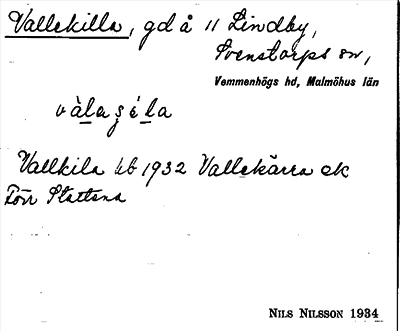 Vallekilla, gd å 11 Lindby,
Svenstorps sn,
Vemmenhögs hd, Malmöhus län
vàlaşéla
Vallkila kb 1932 Vallekärra ek
Förr Plattena
NILS NILSSON 1934